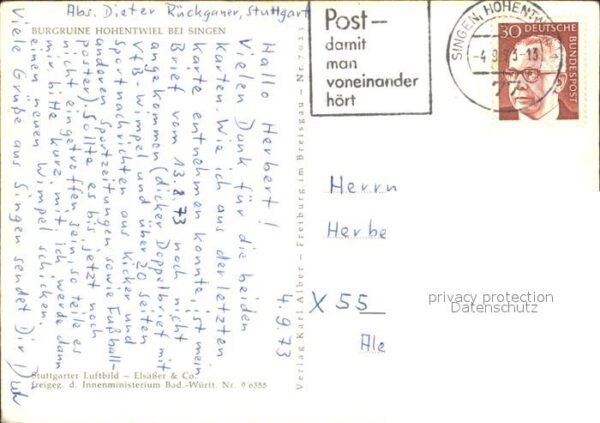 Abs. Dieter Rückganer, Stuttgart
BURGRUINE HOHENTWIEL BEI SINGEN
4.9.73
Hallo Herbert!
Vielen Dank für die beiden
Karten. Wie ich aus der letzten
Karte entnehmen konnte, ist mein
Brief vom 13.8.73 noch nicht
angekommen (dicker Doppelbrief mit
VfB-Wimpel und über 20 Seiten
Sportnachrichten aus Kicker und
anderen Sportzeitungen sowie Fußball-
poster). Sollte es bis jetzt noch
nicht eingetroffen sein, so teile es
mir bitte kurz mit, ich werde dann
einen neuen Wimpel schicken.
Viele Grüße aus Singen sendet Dir
Stuttgarter Luftbild — Elsäßer & Co.
freigeg. d. Innenministerium Bad.-Württ. Nr. 9 6355
Verlag Karl Alber — Freiburg im Breisgau
Post-
damit
man
voneinander
hört
SINGEN, HOHENTW
77
30 DEUTSCHE
BUNDESPOST
Herrn
Herbe
X 55
Ale
privacy protection
Datenschutz